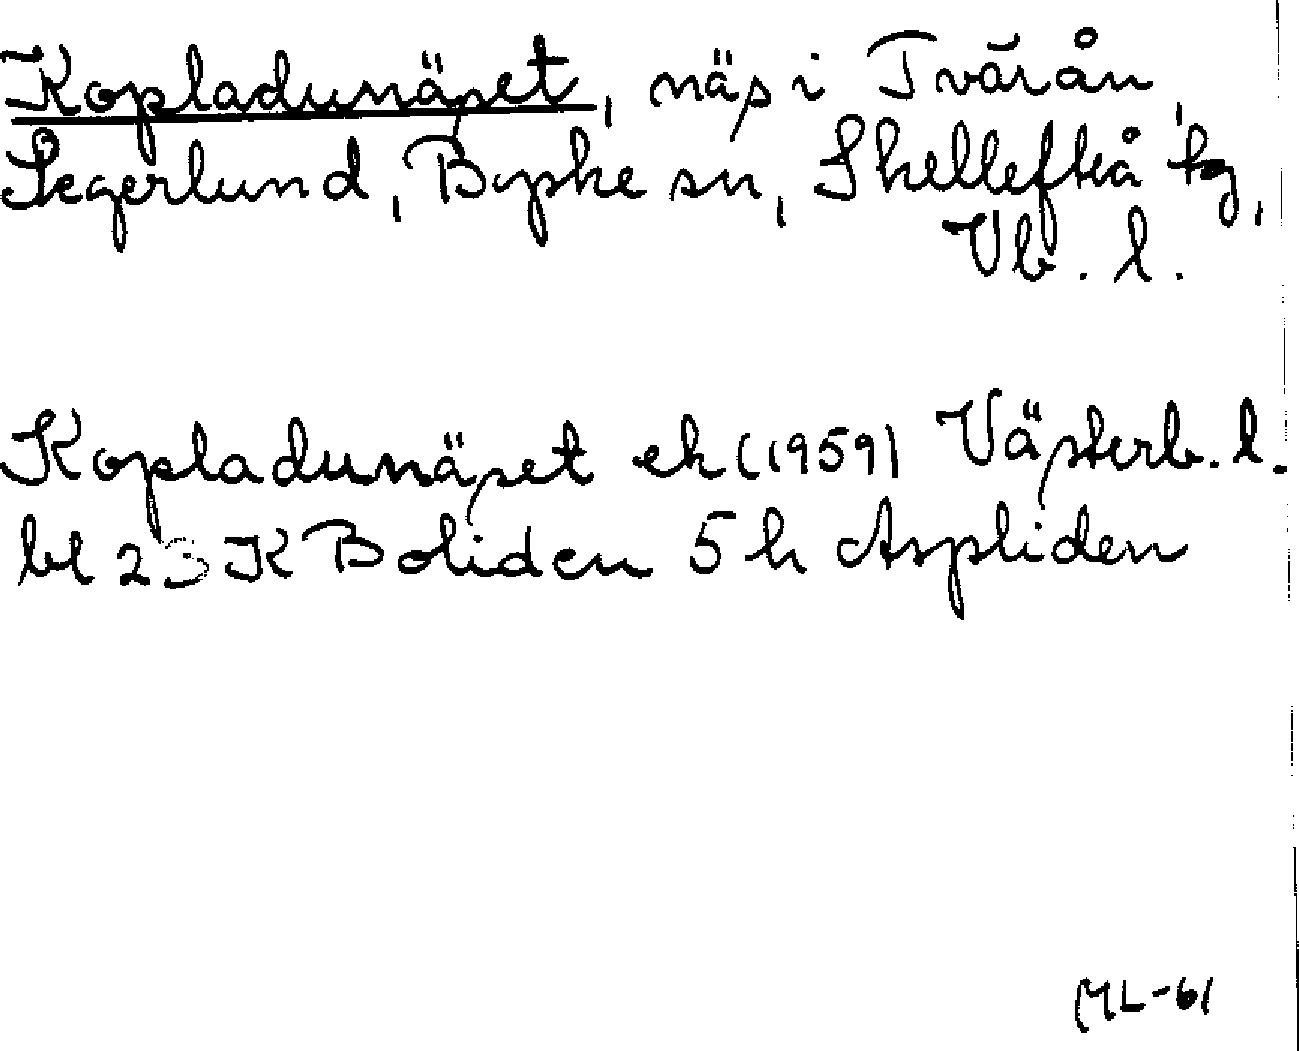 Kopladunäset, näs i Tvärån,
Segerlund, Byske sn, Skellefteå tg,
Vb. l.
Kopladunäset ek (1959) Västerb. l.
bl 23 K Boliden 5 h Aspliden
ML-61